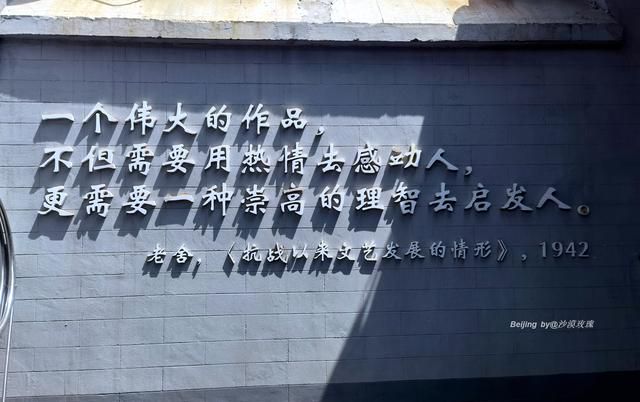 一个伟大的作品，
不但需要用热情去感动人，
更需要一种崇高的理智去启发人。
老舍，《抗战以来文艺发展的情形》，1942
Beijing by@沙漠玫瑰